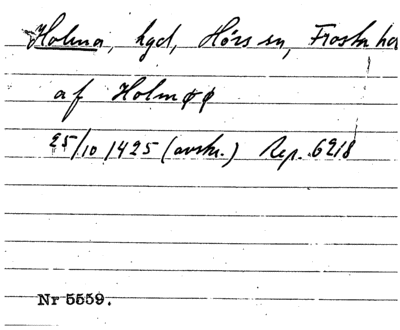 Holma, hgd, Hörs sn, Frosta hd
af Holmøø
25/10 1425 (avskr.) Rep. 6218
Nr 5559.